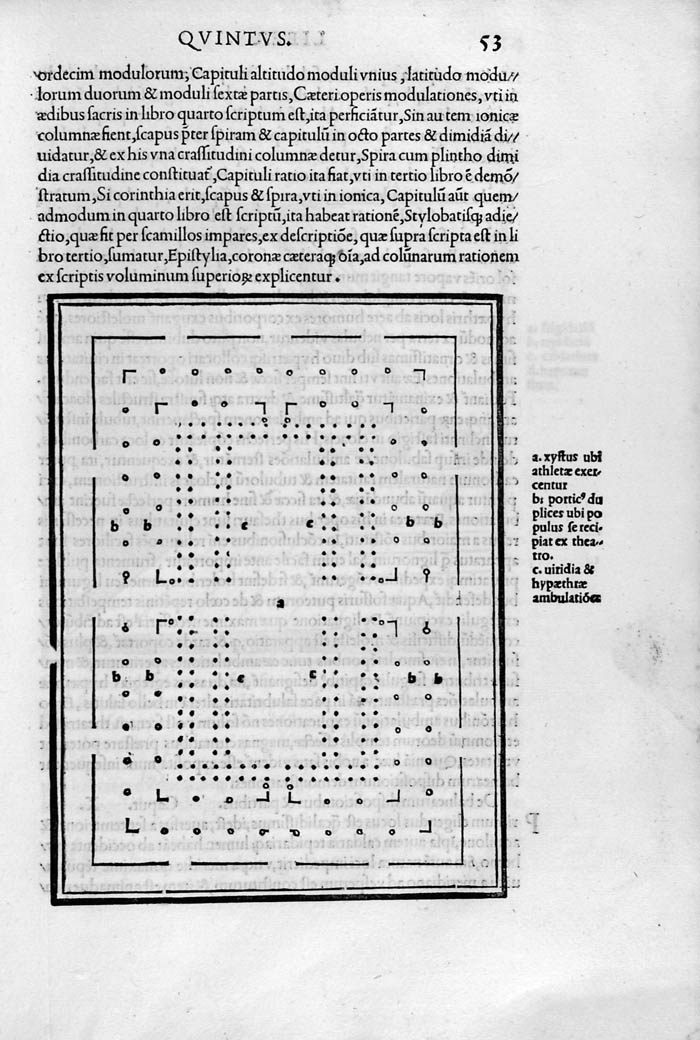 QVINTVS.
53
ordecim modulorum, Capituli altitudo moduli vnius, latitudo modu//
lorum duorum & moduli sextæ partis, Cæteri operis modulationes, vti in
ædibus sacris in libro quarto scriptum est, ita perficiãtur, Sin autem ionicæ
columnæ fient, scapus p̃ter spiram & capitulũ in octo partes & dimidiã di/
uidatur, & ex his vna crassitudini columnæ detur, Spira cum plintho dimi
dia crassitudine constituat̃, Capituli ratio ita fiat, vti in tertio libro ẽ demõ/
stratum, Si corinthia erit, scapus & spira, vti in ionica, Capitulũ aũt quem/
admodum in quarto libro est scriptũ, ita habeat rationẽ, Stylobatisqꝫ adie/
ctio, quæ fit per scamillos impares, ex descriptiõe, quæ supra scripta est in li
bro tertio, sumatur, Epistylia, coronæ cæteraqꝫ oĩa, ad colũnarum rationem
ex scriptis voluminum superioꝝ explicentur.
b b c c b b
a
b b c c b b
a. xystus ubi
athletæ exer-
centur
b: porticꝰ du
plices ubi po
pulus se reci-
piat ex thea-
tro.
c. uiridia &
hypæthræ
ambulatiões